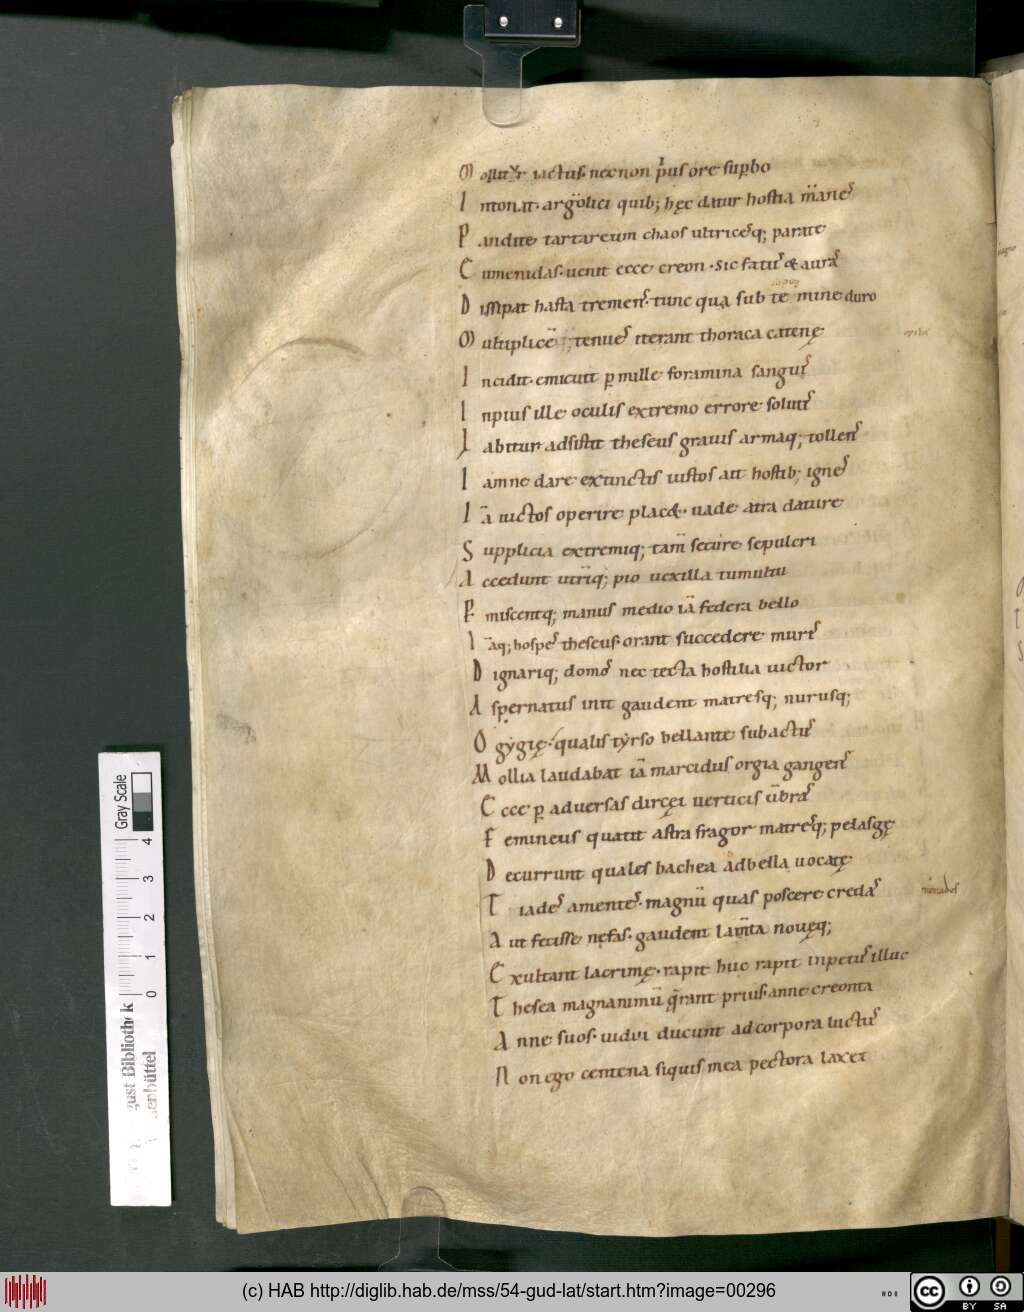 Mollitur iactus necnon p̄us ore supbo
Intonat· argolici quib; hęc datur hostia manes
Pandite tartareum chaos ultricesq; parate
Eumenidas· uenit ecce creon· sic fatus & auras
Dissipat hasta tremens· tunc qua sub tem̄ine duro
Multiplicē tenues iterant thoraca catenę
Incidit· emicuit p mille foramina sanguis
Inpius ille oculis extremo errore solutis
Labitur adsistit theseus grauis armaq; tollens
Iamne dare extinctis iustos ait hostib; ignes
Iā uictos operire plac&· uade atra dature
Supplicia extremiq; tam̄ secure sepulcri
Accedunt utrīq; pio uexilla tumultu
Pmiscentq; manus medio iā federa bello
Iāq; hospes theseus· orant succedere muris
Dignariq; domos nec tecta hostilia uictor
Aspernatus init gaudent matresq; nurusq;
Ogygię· qualis tyrso bellante subactus
Mollia laudabat iā marcidus orgia ganges
Ecce p aduersas dircęi uerticis ūbras
Femineus quatit astra fragor matresq; pelasgę
Decurrunt quales bachea ad bella uocatę
Tiades amentes· magnū quas poscere credas
Aut fecisse nefas· gaudent lam̄ta nouęq;
Exultant lacrimę· rapit huc rapit inpetus illuc
Thesea magnanimū q̄rant prius· anne creonta
Anne suos· uidui ducunt ad corpora luctus
Non ego centena siquis mea pectora laxet
menades
Gray Scale
4
3
2
1
0
ust Bibliothek
enbüttel
(c) HAB http://diglib.hab.de/mss/54-gud-lat/start.htm?image=00296
cc
BY SA